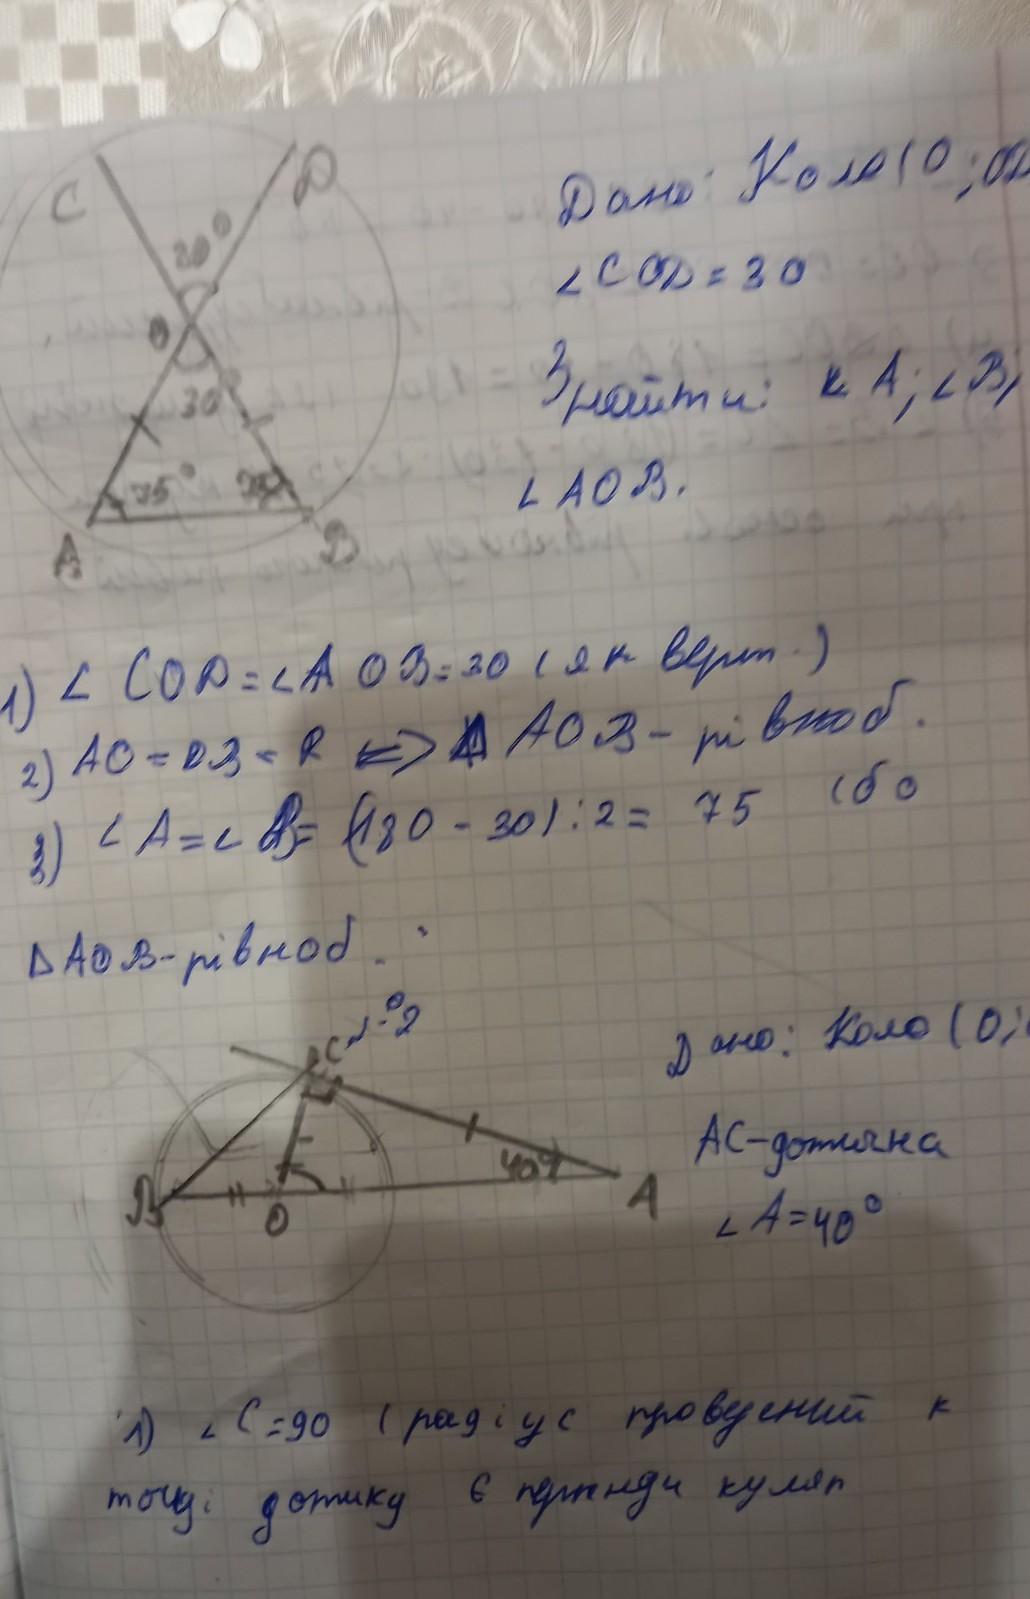 C D
30°
O
30°
75° 75
A B
Дано: Коло (O; OD
∠COD = 30
Знайти: ∠A; ∠B;
∠AOB.
1) ∠COD = ∠AOB = 30 (як верт.)
2) AO = OB = R <=> Δ AOB - рівноб.
3) ∠A = ∠B = (180 - 30) : 2 = 75 (бо
ΔAOB - рівноб.
C
B O 40° A
Дано: Коло (O;
AC - дотична
∠A = 40°
1) ∠C = 90 (радіус проведений к
точці дотику є